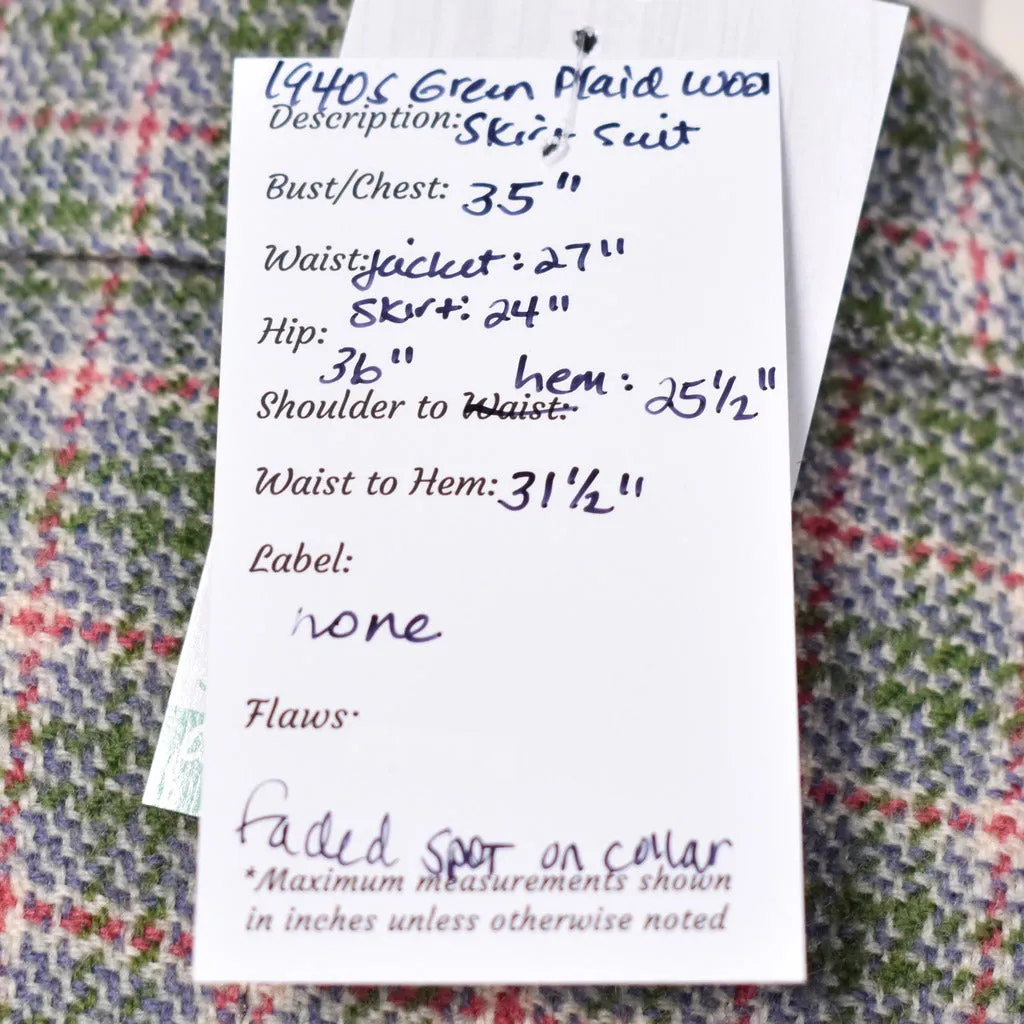 1940s Green Plaid Wool
Description: Skirt Suit
Bust/Chest: 35"
Waist: Jacket: 27"
Skirt: 24"
Hip:
36"
hem: 25½"
Shoulder to Waist:
Waist to Hem: 31½"
Label:
none
Flaws:
faded spot on collar
*Maximum measurements shown
in inches unless otherwise noted